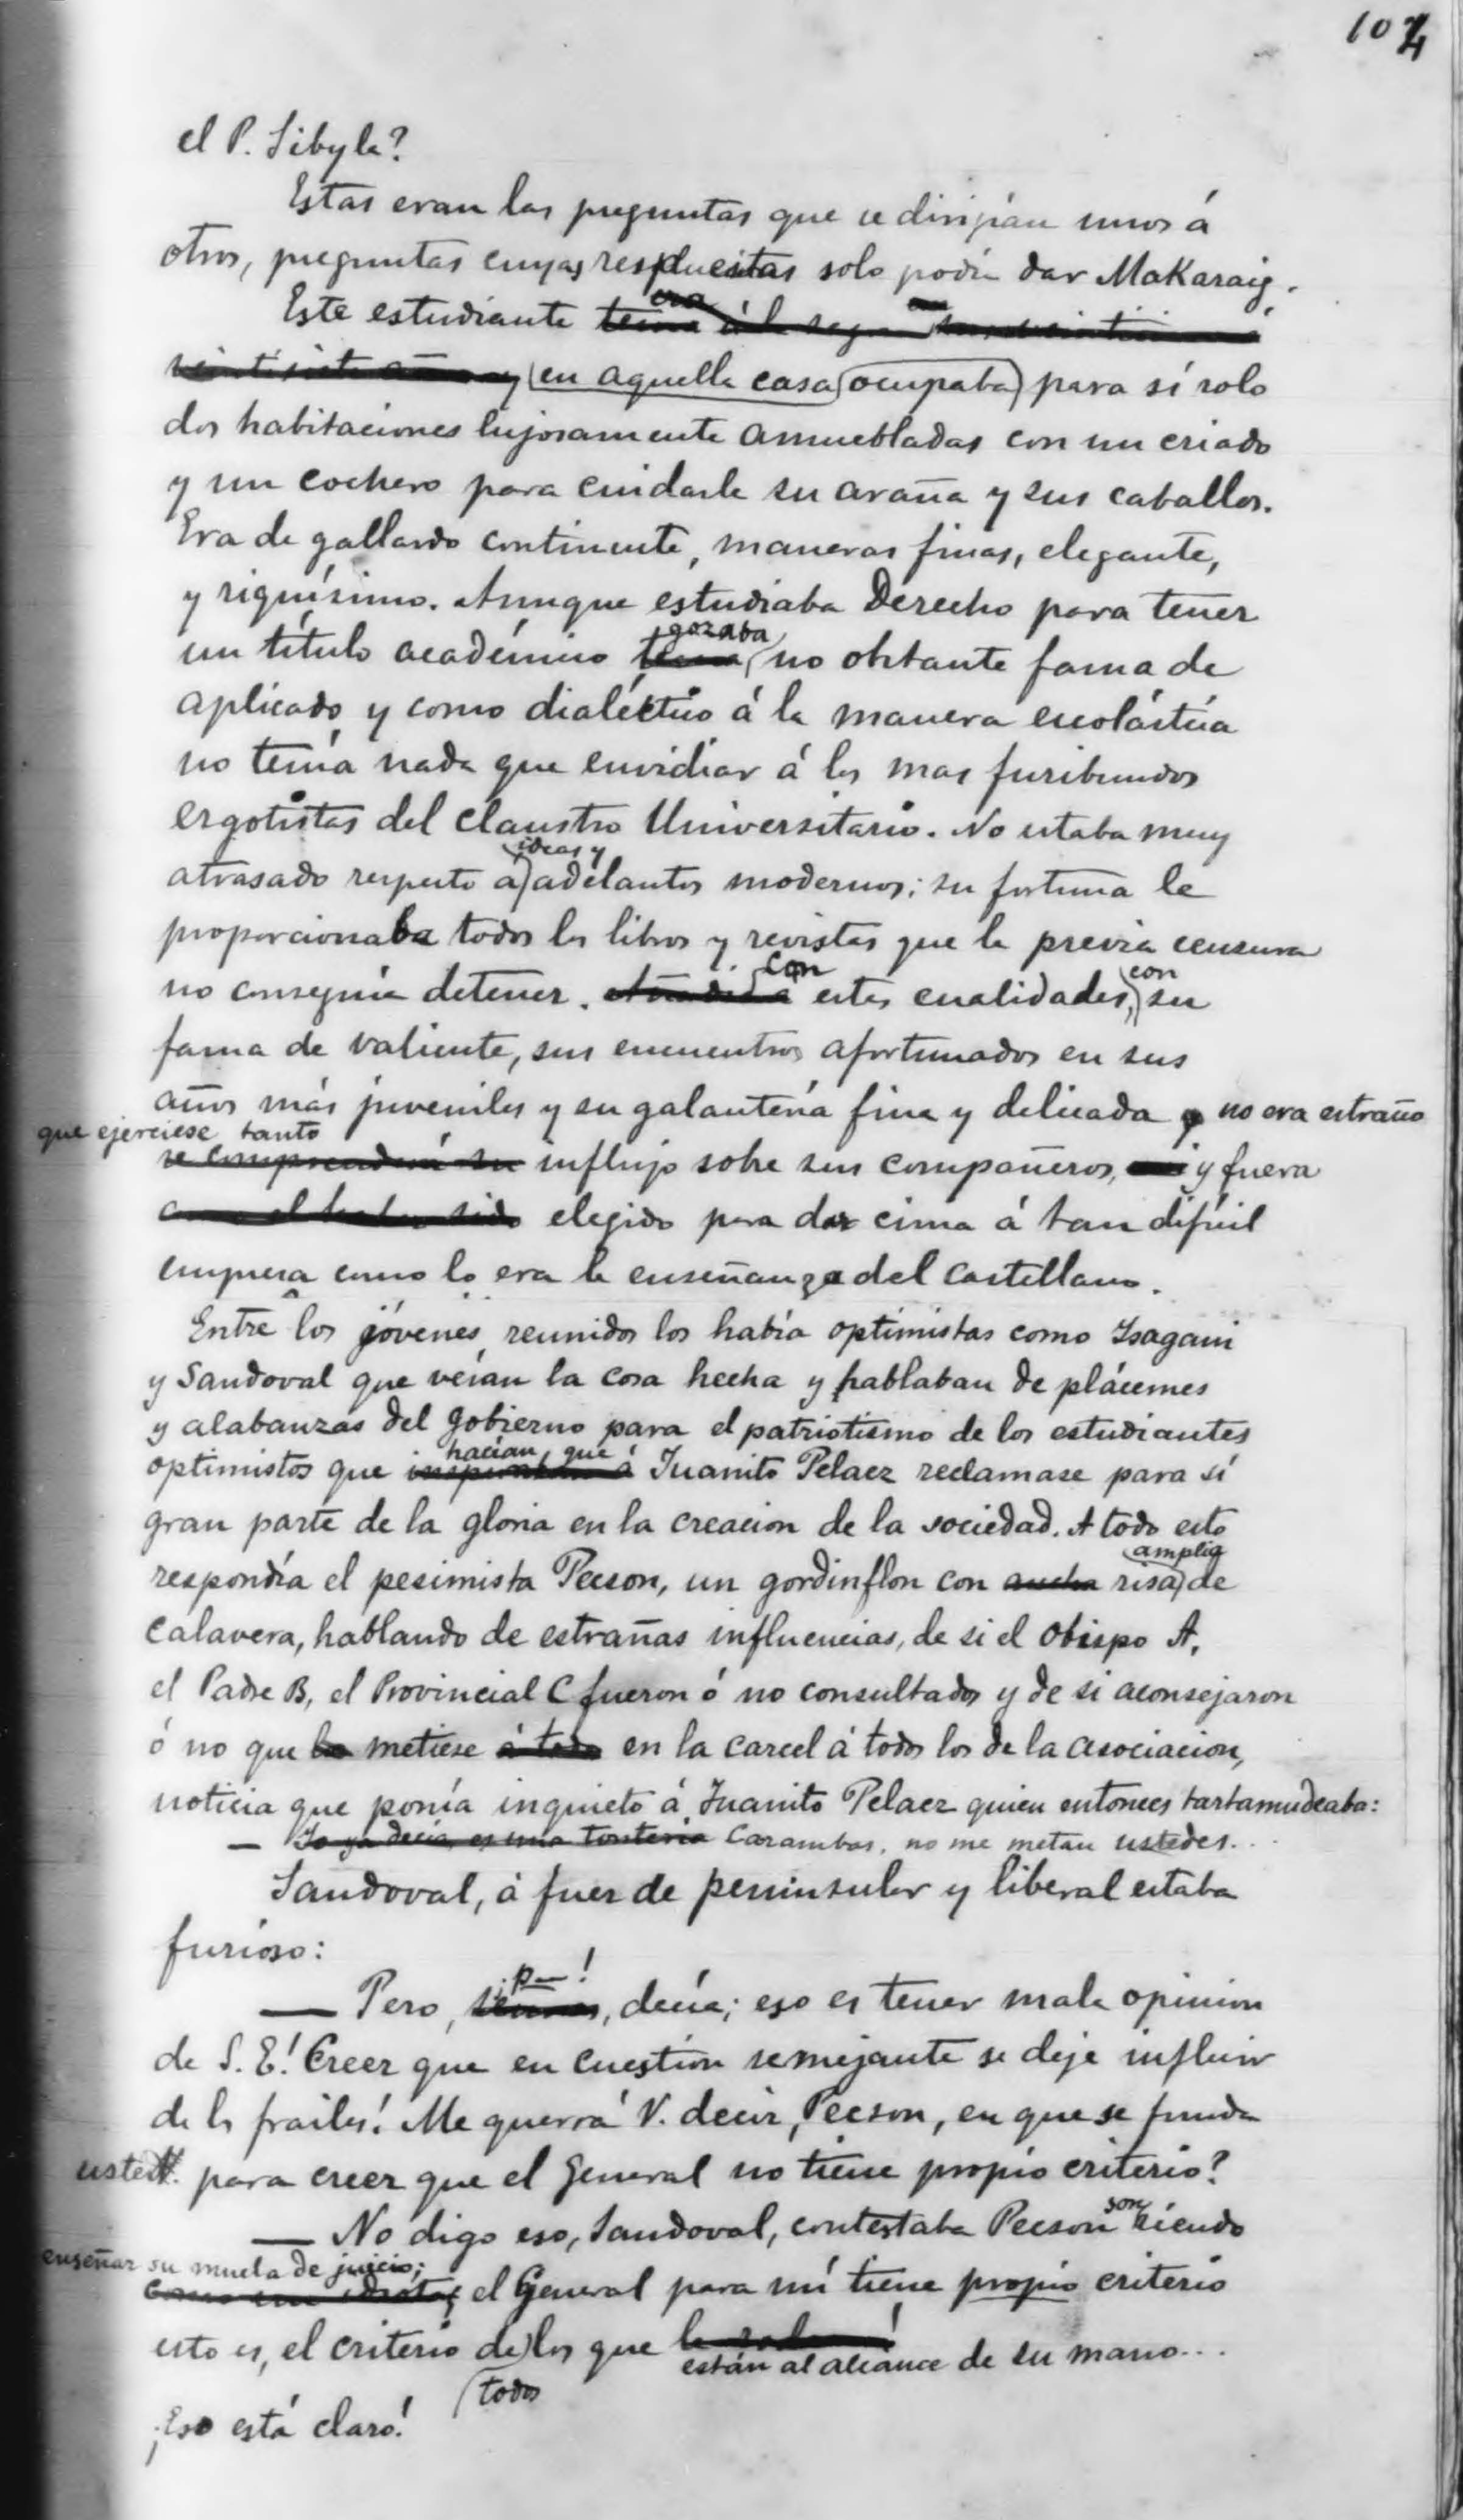 104
el P. Sibyla?
Estas eran las preguntas que se dirigían unos á
otros, preguntas cuyas respuestas solo podía dar Makaraig.
Este estudiante
en aquella casa ocupaba para sí solo
dos habitaciones lujosamente amuebladas con un criado
y un cochero para cuidarle su araña y sus caballos.
Era de gallardo continente, maneras finas, elegante,
y riquísimo. Aunque estudiaba Derecho para tener
un título académico gozaba no obstante fama de
aplicado y como dialéctico á la manera escolástica
no tenía nada que envidiar á los mas furibundos
ergotistas del claustro Universitario. No estaba muy
atrasado respecto á ideas y adelantos modernos; su fortuna le
proporcionaba todos los libros y revistas que la previa censura
no conseguía detener. Con estas cualidades, con su
fama de valiente, sus encuentros afortunados en sus
años más juveniles y su galantería fina y delicada no era estraño
que ejerciese tanto
influjo sobre sus compañeros, y fuera
elegido para dar cima á tan difícil
empresa como lo era la enseñanza del castellano.
Entre los jóvenes reunidos los había optimistas como Isagani
y Sandoval que veían la cosa hecha y hablaban de plácemes
y alabanzas del gobierno para el patriotismo de los estudiantes
optimistos que hacían que Juanito Pelaez reclamase para sí
gran parte de la gloria en la creacion de la sociedad. A todo esto
respondía el pesimista Pecson, un gordinflon con amplia risa de
calavera, hablando de estrañas influencias, de si el Obispo A,
el Padre B, el Provincial C fueron ó no consultados y de si aconsejaron
ó no que metiese en la carcel á todos los de la asociacion,
noticia que ponía inquieto á Juanito Pelaez quien entonces tartamudeaba:
— Yo ya decía, es una tontería Carambas, no me metan ustedes...
Sandoval, á fuer de peninsular y liberal estaba
furioso:
— Pero, p—! decía; eso es tener mala opinion
de S. E! Creer que en cuestion semejante se deje influir
de los frailes! Me querrá V. decir, Pecson, en que se funda
usted para creer que el General no tiene propio criterio?
— No digo eso, Sandoval, contestaba Pecson sonriendo
enseñar su muela de juicio;
como un idiota; el General para mí tiene propio criterio
esto es, el criterio de todos los que están al alcance de su mano...
¡Eso está claro!